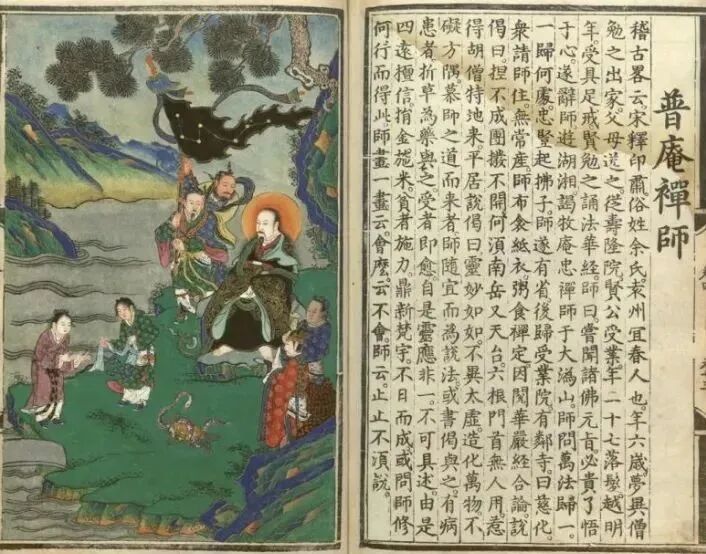 普庵禪師
稽古畧云。宋釋印肅。俗姓余氏。袁州宜春人也。年六歲。夢異僧
勉之出家。父母送之。從壽隆院賢公受業。年二十七落髮。越明
年受具足戒。賢勉之誦法華經。師曰。嘗聞諸佛元旨。必貴了悟
于心。遂辭師遊湖湘。謁牧庵忠禪師于大溈山。師問萬法歸一。
一歸何處。忠豎起拂子。師遂有省。後歸受業院。有鄰寺。曰慈化。
衆請師住。無常產。師布衾紙衣。粥食禪定。因閱華嚴經合論。說
偈曰。捏不成團撥不開。何湏南岳又天台。六根門首無人用。惹
得胡僧特地来。平居說偈曰。靈妙如如。不異太虛。造化萬物。不
礙方隅。慕師之道而来者。師隨宜而為說法。或書偈與之。有病
患者。折草為藥與之。受者即愈。自是靈應非一。不可具述。由是
四遠檀信。捐金施米。貧者施力。鼎新梵宇。不日而成。或問師修
何行而得此。師畫一畫云。會麽。云不會。師云。止止不湏說。